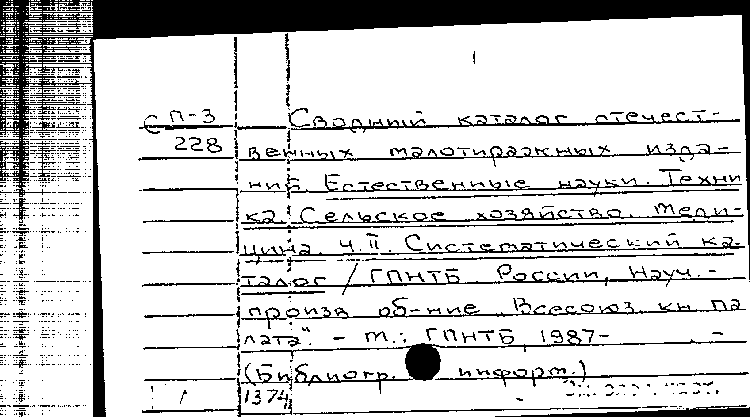 С П-3
228
Сводный каталог отечест-
венных малотиражных изда-
ний. Естественные науки. Техни
ка. Сельское хозяйство. Меди-
цина. Ч. II. Систематический ка-
талог / ГПНТБ России, Науч.-
произв об-ние "Всесоюз. кн. па
лата". - М.: ГПНТБ, 1987- . -
(Библиогр. информ.)
1374